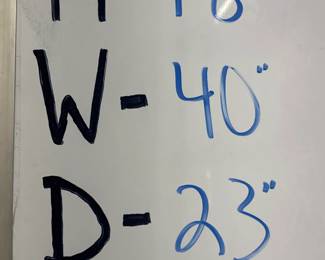 W- 40"
D- 23"